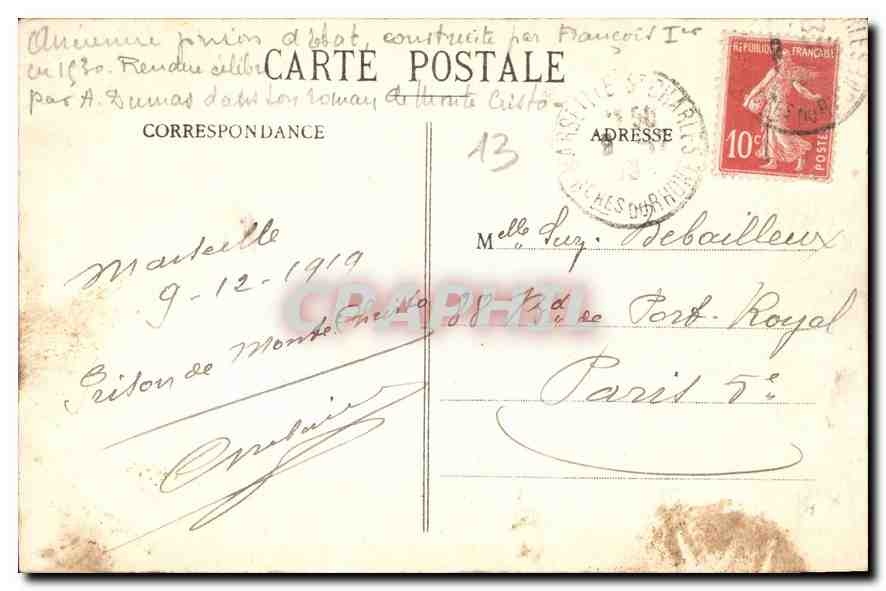 Ancienne prison d'état, construite par François Ier
en 1530. Rendue célèbre
CARTE POSTALE
par A. Dumas dans son roman de Monte Cristo
CORRESPONDANCE
ADRESSE
13
MARSEILLE ST CHARLES
BCHES DU RHONE
REPUBLIQUE FRANÇAISE
10c
POSTES
Marseille
9-12-1919
Prison de Monte Christo
Melle Suz. Debailleux
88 Bd de Port-Royal
Paris 5e
CPAPHIL